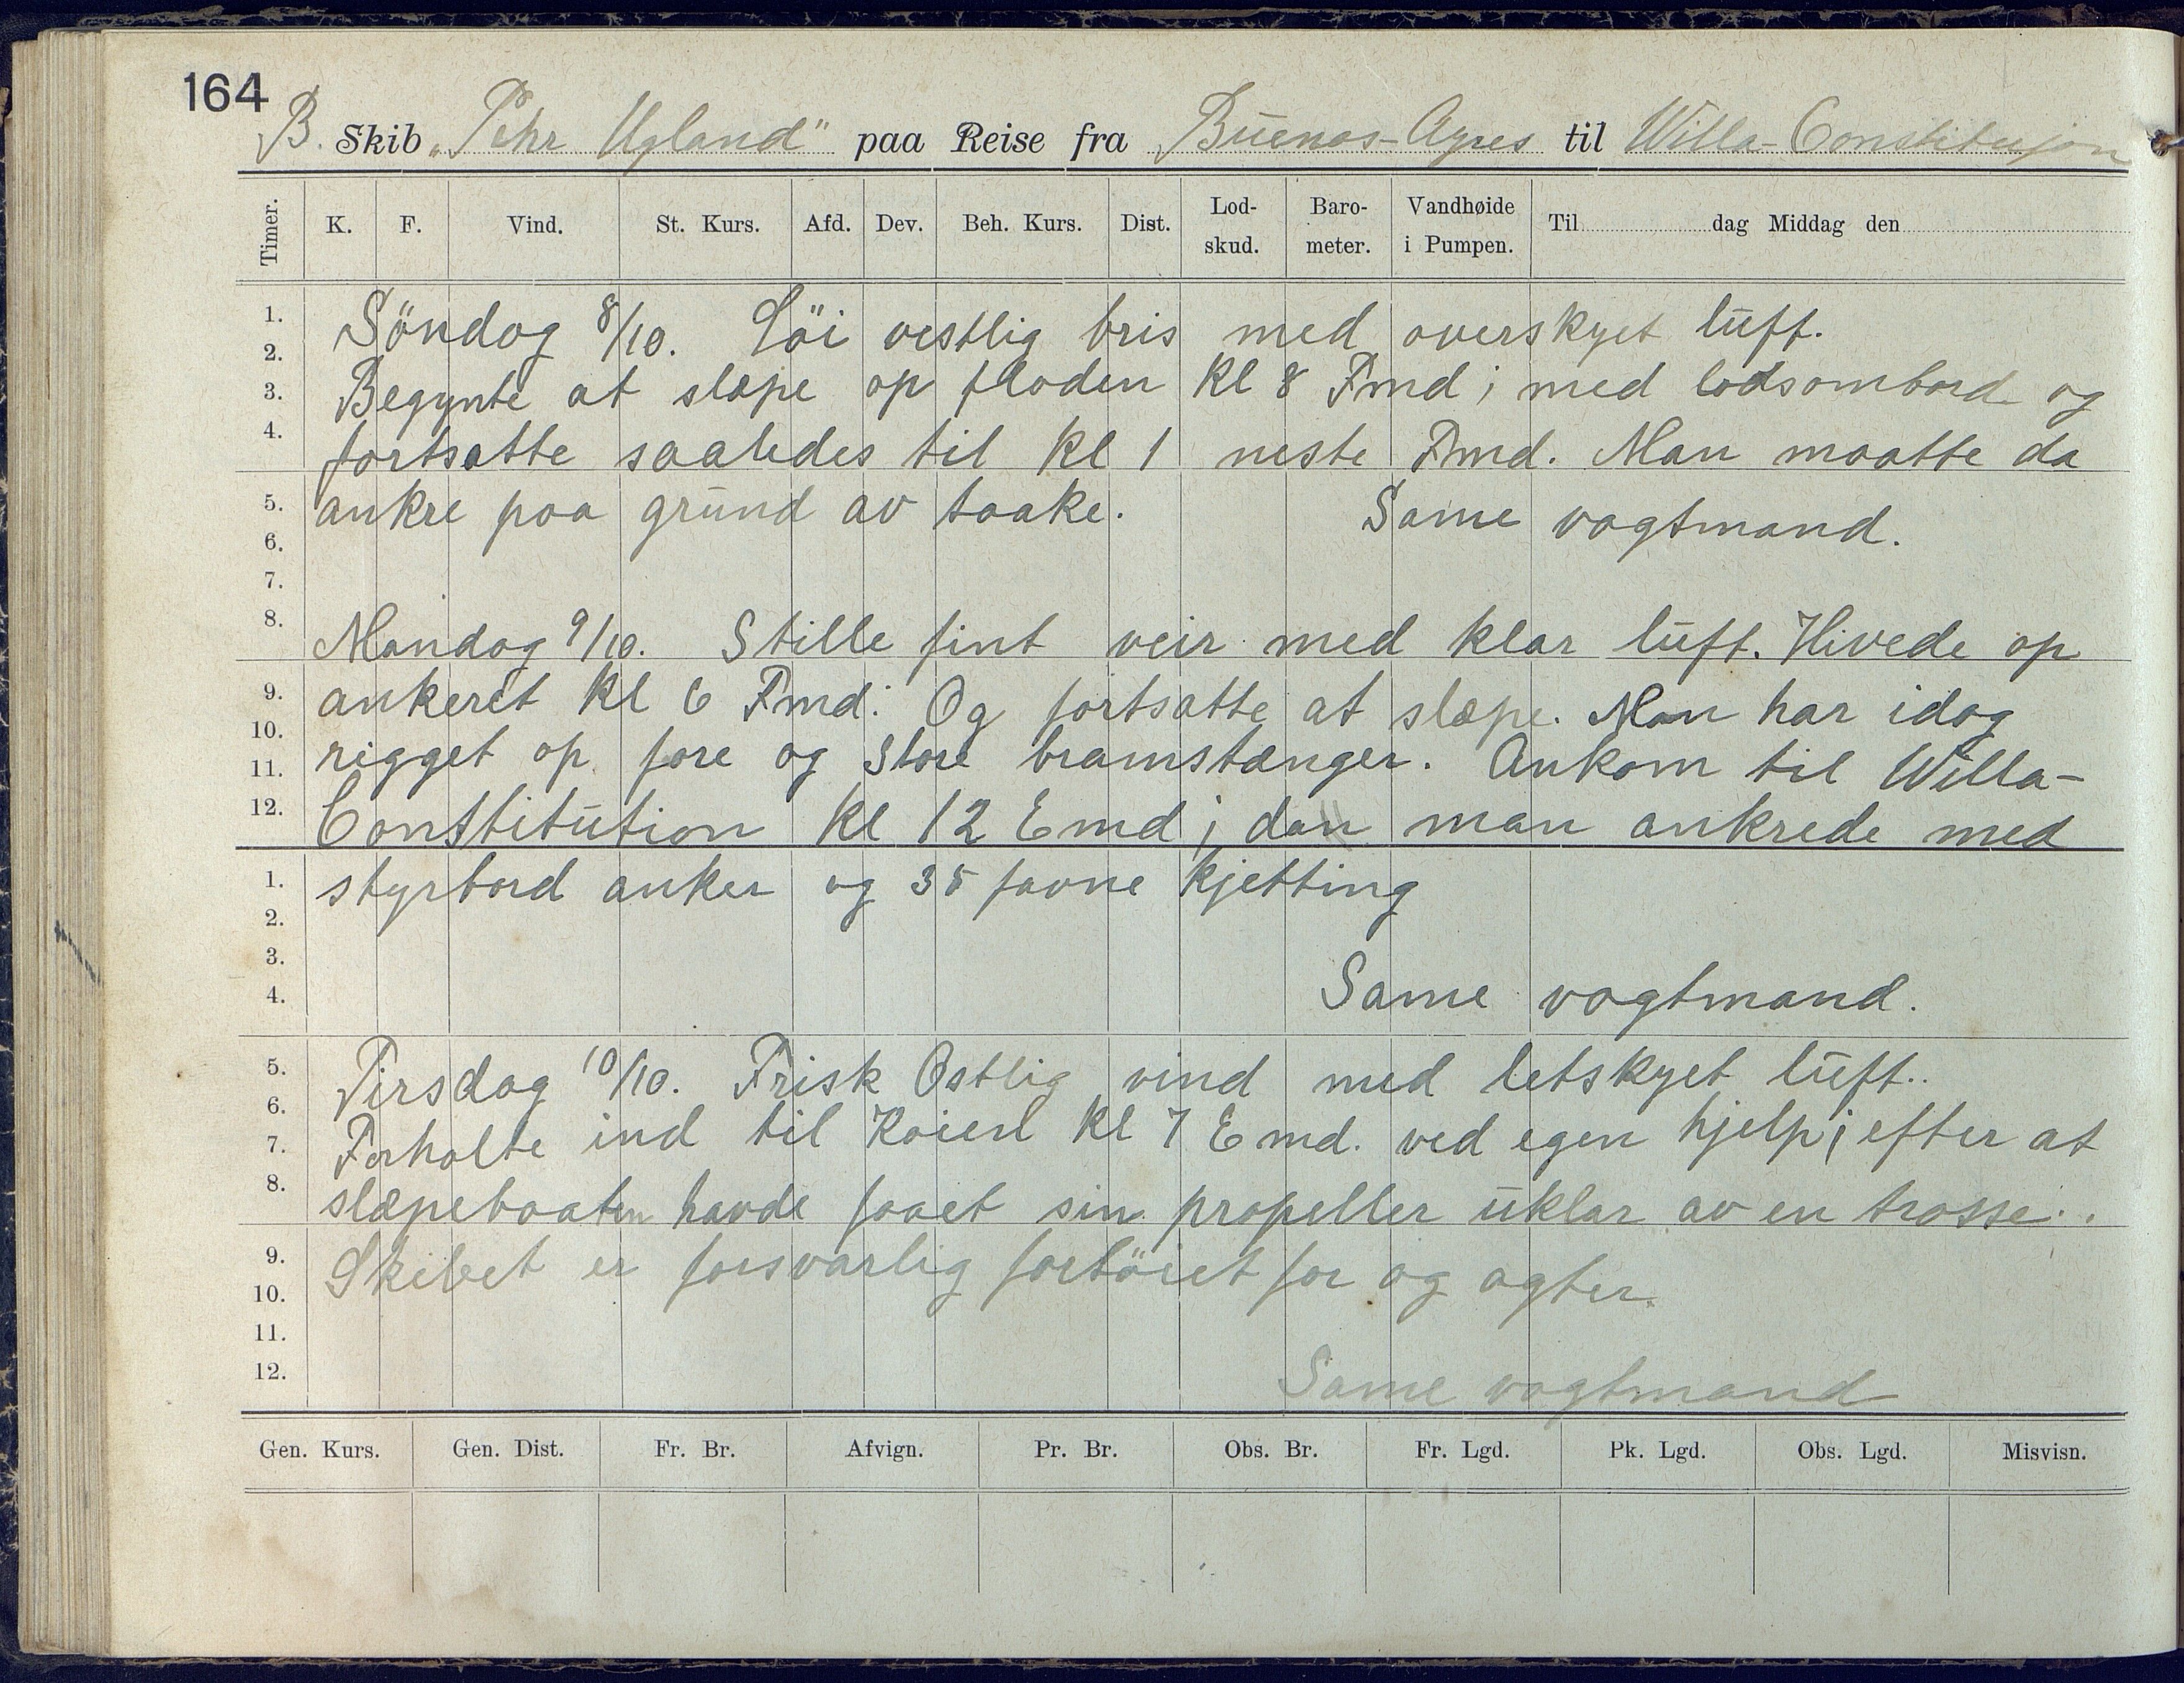 164
B. Skib „Pehr Ugland" paa Reise fra Buenos-Ayres til Willa-Constitusjon
Timer. K. F. Vind. St. Kurs. Afd. Dev. Beh. Kurs. Dist. Lod-skud. Baro-meter. Vandhøide i Pumpen. Til dag Middag den
1. Söndag 8/10. Löi vestlig bris med overskyet luft.
2.
3. Begynte at slæpe op floden kl 8 Fmd; med lodsombord og
4. fortsatte saaledes til kl 1 neste Fmd. Man maatte da
5. ankre paa grund av taake. Same vagtmand.
6.
7.
8. Mandag 9/10. Stille fint veir med klar luft. Hivede op
9. ankeret kl 6 Fmd: Og fortsatte at slæpe. Man har idag
10.
11. rigget op fore og store bramstænger. Ankom til Willa-
12. Constitution kl 12 Emd; dan man ankrede med
1. styrbord anker og 35 favne kjetting
2.
3.
4. Same vagtmand.
5. Tirsdag 10/10. Frisk Ostlig vind med letskyet luft..
6.
7. Forholte ind til Kaien kl 7 Emd. ved egen hjelp; efter at
8. slæpebaaten havde faaet sin propeller uklar av en trosse..
9. Skibet er forsvarlig fortöiet for og agter.
10.
11.
12. Same vagtmand
Gen. Kurs. Gen. Dist. Fr. Br. Afvign. Pr. Br. Obs. Br. Fr. Lgd. Pk. Lgd. Obs. Lgd. Misvisn.